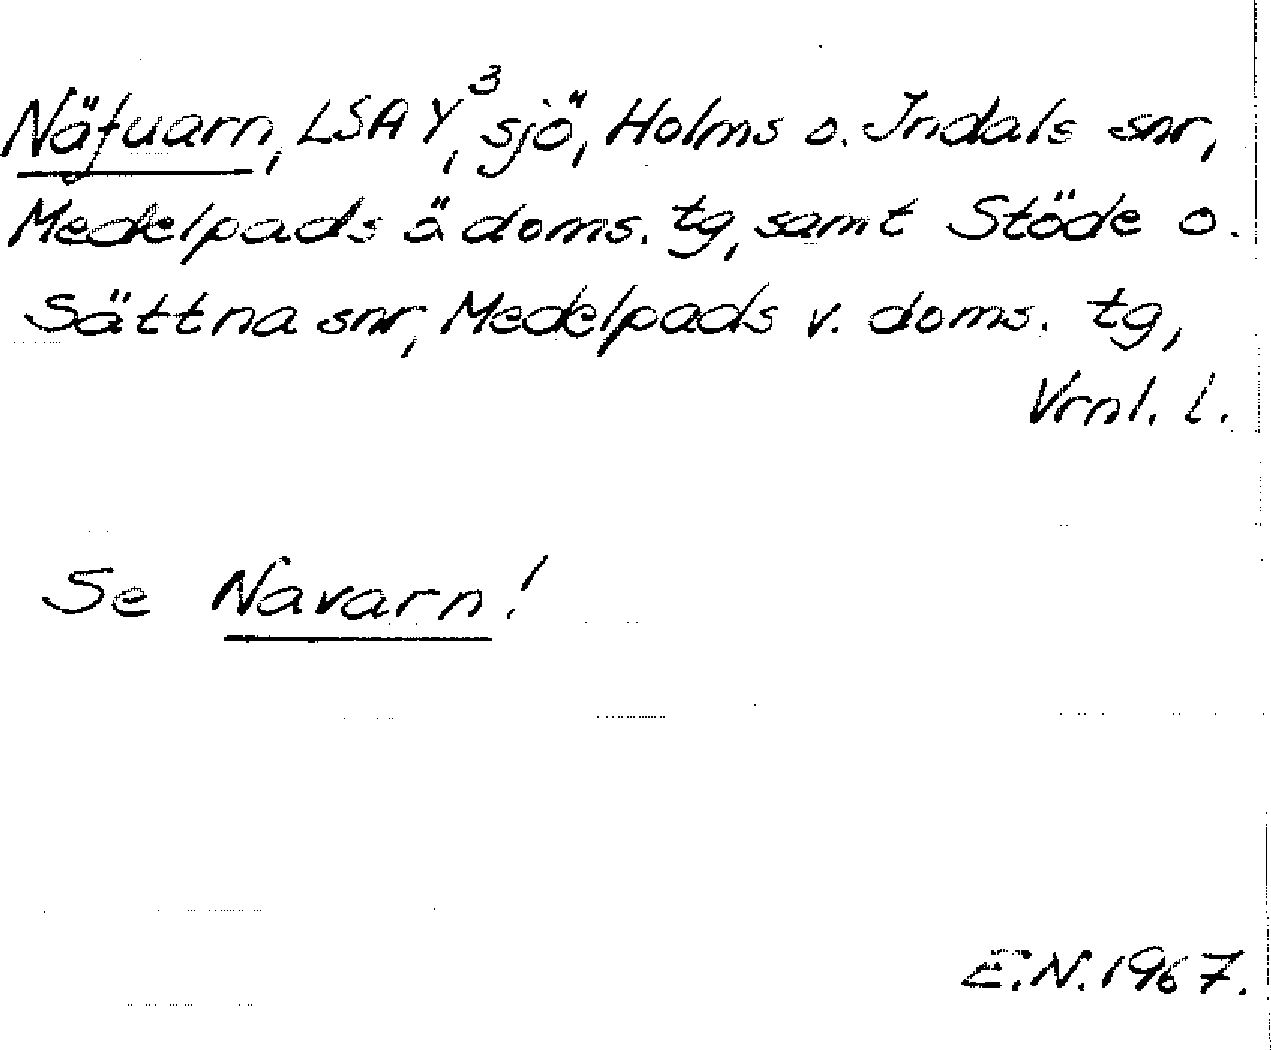 Näfuarn, LSA Y³, sjö, Holms o. Indals snr,
Medelpads ö doms. tg, samt Stöde o.
Sättna snr, Medelpads v. doms. tg,
Vrnl. l.
Se Navarn!
E.N. 1967.